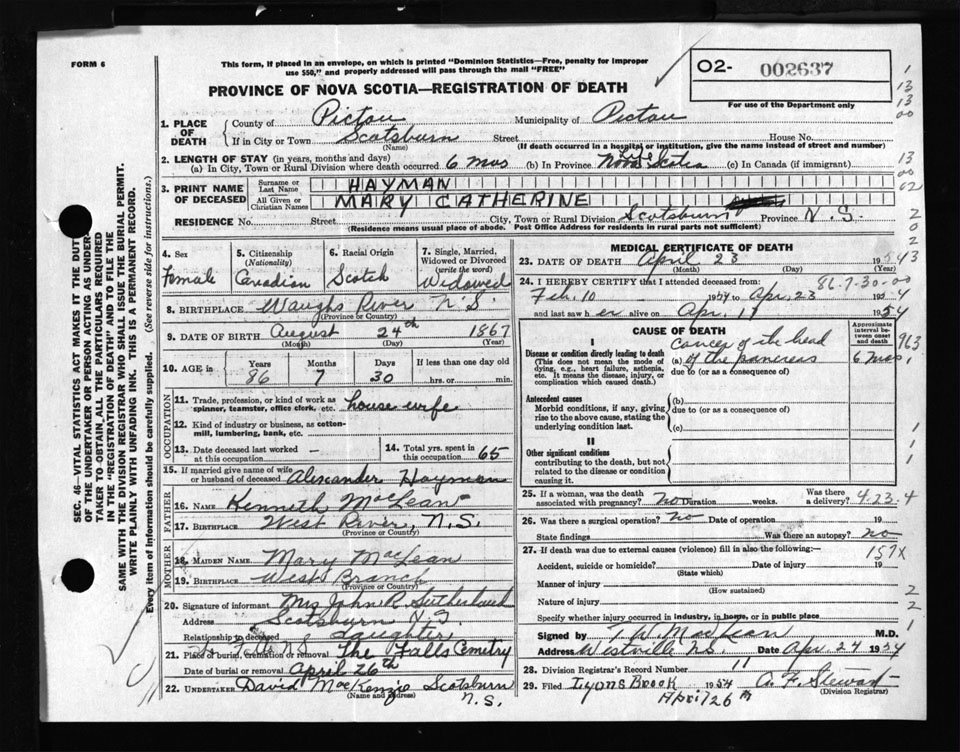 FORM 6
This form, if placed in an envelope, on which is printed "Dominion Statistics—Free, penalty for improper
use $50," and properly addressed will pass through the mail "FREE"
O2- 002637
For use of the Department only
PROVINCE OF NOVA SCOTIA—REGISTRATION OF DEATH
1. PLACE OF DEATH
County of Pictou Municipality of Pictou
If in City or Town Scotsburn Street House No.
(Name) (If death occurred in a hospital or institution, give the name instead of street and number)
2. LENGTH OF STAY (in years, months and days)
(a) In City, Town or Rural Division where death occurred 6 mos (b) In Province Nova Scotia (c) In Canada (if immigrant)
3. PRINT NAME OF DECEASED
Surname or Last Name HAYMAN
All Given or Christian Names MARY CATHERINE
RESIDENCE No. Street City, Town or Rural Division Scotsburn Province N.S.
(Residence means usual place of abode. Post Office Address for residents in rural parts not sufficient)
SEC. 46—VITAL STATISTICS ACT MAKES IT THE DUTY
OF THE UNDERTAKER OR PERSON ACTING AS UNDER-
TAKER TO OBTAIN ALL THE PARTICULARS REQUIRED
IN THE "REGISTRATION OF DEATH" AND TO FILE THE
SAME WITH THE DIVISION REGISTRAR WHO SHALL ISSUE THE BURIAL PERMIT.
WRITE PLAINLY WITH UNFADING INK. THIS IS A PERMANENT RECORD.
Every item of information should be carefully supplied. (See reverse side for instructions.)
4. Sex Female
5. Citizenship (Nationality) Canadian
6. Racial Origin Scotch
7. Single, Married, Widowed or Divorced (write the word) Widowed
8. BIRTHPLACE Waughs River N.S.
(Province or Country)
9. DATE OF BIRTH August 24th 1867
(Month) (Day) (Year)
10. AGE in Years 86 Months 7 Days 30 If less than one day old hrs. or min.
OCCUPATION
11. Trade, profession, or kind of work as spinner, teamster, office clerk, etc. house wife
12. Kind of industry or business, as cotton-mill, lumbering, bank, etc.
13. Date deceased last worked at this occupation –
14. Total yrs. spent in this occupation 65
15. If married give name of wife or husband of deceased Alexander Hayman
FATHER
16. Name Kenneth MacLean
17. Birthplace West River, N.S.
(Province or Country)
MOTHER
18. Maiden Name Mary MacLean
19. Birthplace West Branch
(Province or Country)
20. Signature of informant Mrs John R Sutherland
Address Scotsburn N.S.
Relationship to deceased daughter
21. Place of burial, cremation or removal The Falls Cemetry
Date of burial or removal April 26th
22. Undertaker David MacKenzie Scotsburn
(Name and address) N.S.
MEDICAL CERTIFICATE OF DEATH
23. DATE OF DEATH April 23 1954
(Month) (Day) (Year)
24. I HEREBY CERTIFY that I attended deceased from: 86-7-30-00
Feb. 10 1954 to Apr. 23 1954
and last saw her alive on Apr. 19 1954
CAUSE OF DEATH
Approximate interval between onset and death
I
Disease or condition directly leading to death
(This does not mean the mode of dying, e.g., heart failure, asthenia, etc. It means the disease, injury, or complication which caused death.)
(a) cancer of the head of the pancreas 6 mos.
due to (or as a consequence of)
Antecedent causes
Morbid conditions, if any, giving rise to the above cause, stating the underlying condition last.
(b)
due to (or as a consequence of)
(c)
II
Other significant conditions
contributing to the death, but not related to the disease or condition causing it.
25. If a woman, was the death associated with pregnancy? no Duration weeks. Was there a delivery? 4.23.4
26. Was there a surgical operation? no Date of operation 19
State findings Was there an autopsy? no
27. If death was due to external causes (violence) fill in also the following:— 157X
Accident, suicide or homicide? Date of injury 19
(State which)
Manner of injury
(How sustained)
Nature of injury
Specify whether injury occurred in industry, in home, or in public place
Signed by MacLean M.D.
Address Westville N.S. Date Apr. 24 1954
28. Division Registrar's Record Number 11
29. Filed Lyons Brook 1954 A. F. Stewart
April 26th (Division Registrar)